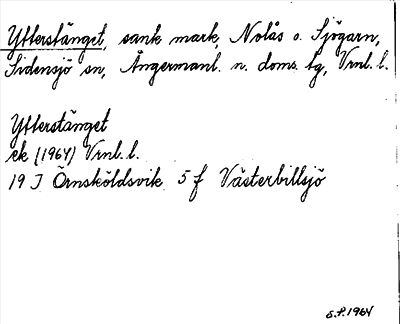 Ytterstänget, sank mark, Nolås o. Sjögarn,
Sidensjö sn, Ångermanl. n. doms. tg, Vrnl. l.
Ytterstänget
ek (1964) Vrnl. l.
19 J Örnsköldsvik 5 f Västerbillsjö
S.F. 1964